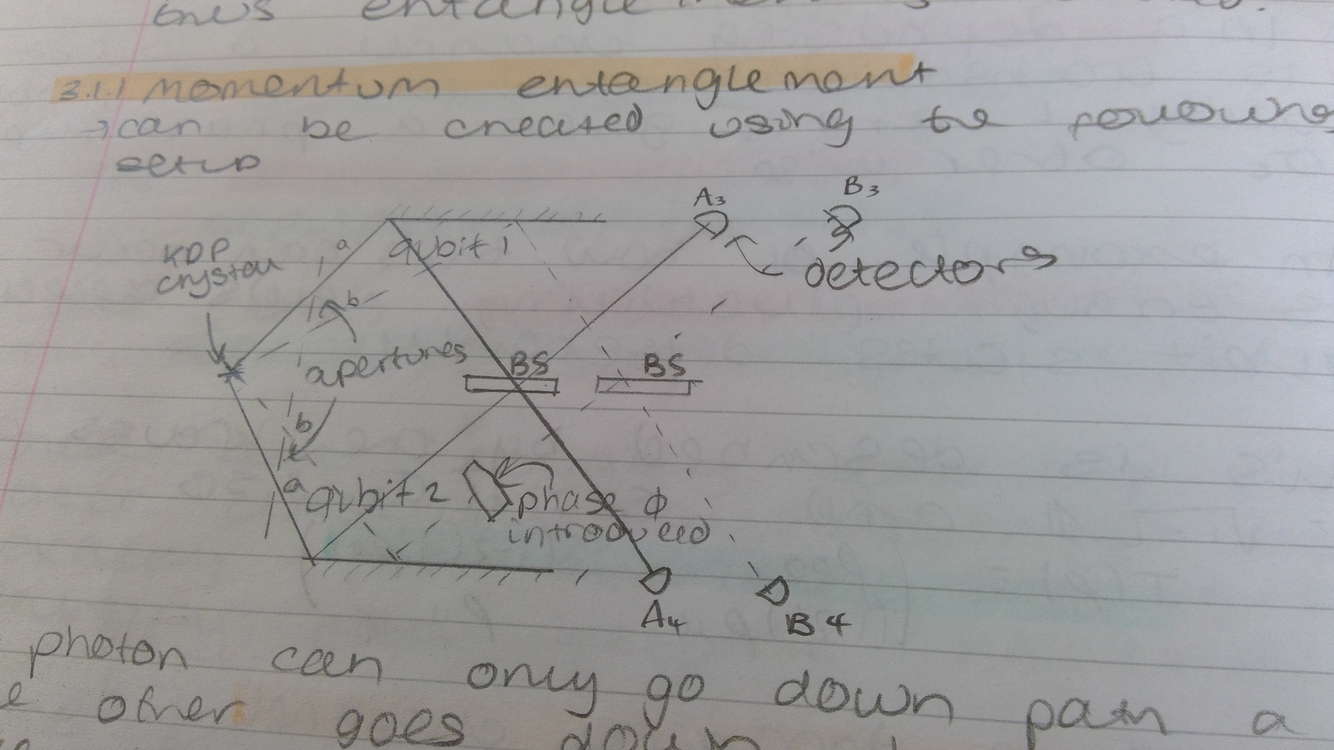 entanglement
3.1.1 momentum entanglement
→can be created using the following
setup
A3
B3
KDP
crystal
a
qubit 1
detectors
b
apertures
BS
BS
b
a
qubit 2
phase ϕ
introduced
A4
B4
photon can only go down path a
other goes down